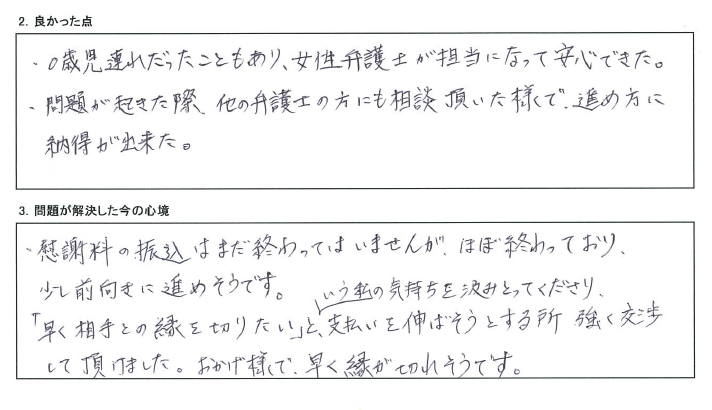 2. 良かった点
・0歳児連れだったこともあり、女性弁護士が担当になって安心できた。
・問題が起きた際、他の弁護士の方にも相談頂いた様で、進め方に
納得が出来た。
3. 問題が解決した今の心境
・慰謝料の振込はまだ終わってはいませんが、ほぼ終わっており、
少し前向きに進めそうです。
いう私の気持ちを汲みとってくださり、
「早く相手との縁を切りたい」と、支払いを伸ばそうとする所 強く交渉
して頂けました。おかげ様で、早く縁が切れそうです。